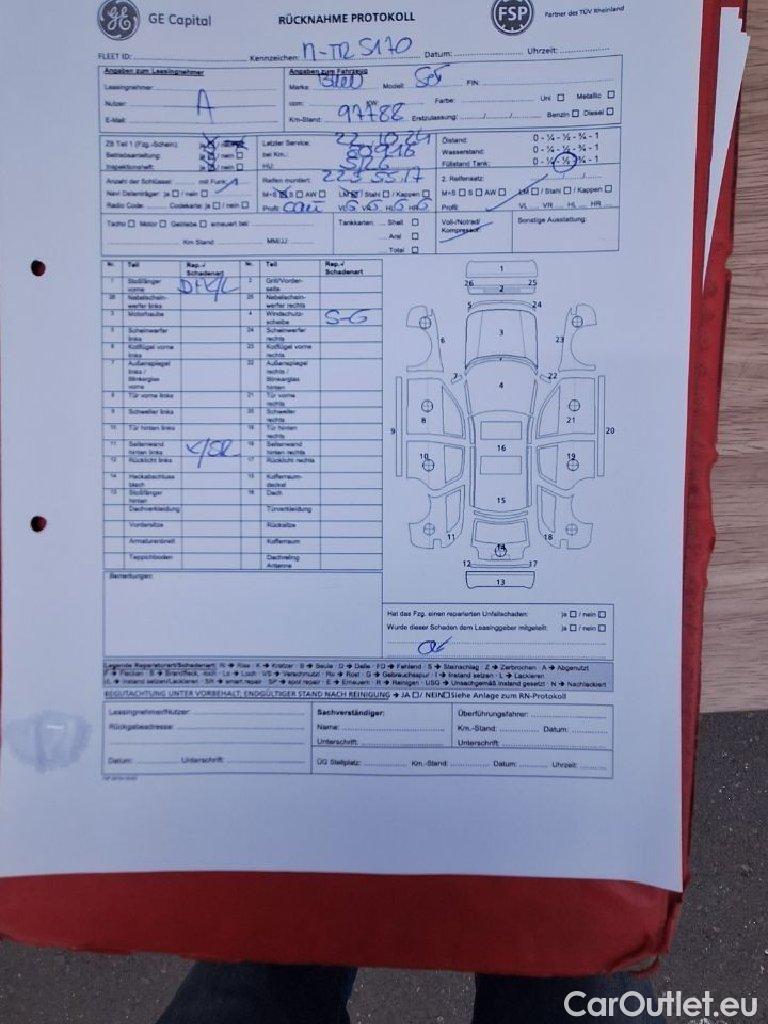 GE Capital RÜCKNAHME PROTOKOLL FSP Partner des TÜV Rheinland
FLEET ID: Kennzeichen: M-TR 5170 Datum: Uhrzeit:
Angaben zum Leasingnehmer Angaben zum Fahrzeug
Leasingnehmer: Marke: Modell: FIN:
Nutzer: A com: KW Farbe: Uni Metallic
E-Mail: Km-Stand: 97788 Erstzulassung: Benzin Diesel
ZB Teil 1 (Fzg.-Schein): ja Letzter Service: 22.10.24 Ölstand: 0 - ¼ - ½ - ¾ - 1
Betriebsanleitung: ja / nein bei Km.: Wasserstand: 0 - ¼ - ½ - ¾ - 1
Inspektionsheft: ja / nein HU: Füllstand Tank: 0 - ¼ - ½ - ¾ - 1
Anzahl der Schlüssel: mit Funk: Reifen montiert: 225 55 17 2. Reifensatz:
Navi Datenträger: ja / nein M+S S AW LM / Stahl / Kappen M+S S AW LM / Stahl / Kappen
Radio Code: Codekarte: ja / nein Profil: VL 6 VR 6 HL 6 HR 6 Profil: VL VR HL HR
Tacho Motor Getriebe erneuert bei: Tankkarten: Shell Voll-/Notrad/ Sonstige Ausstattung:
Aral Kompressor
Km Stand MM/JJ Total
Nr. Teil Rep.-/ Schadenart Nr. Teil Rep.-/ Schadenart
1 Stoßfänger vorne 2 Grill/Vorderseite
26 Nebelscheinwerfer links 25 Nebelscheinwerfer rechts
3 Motorhaube 4 Windschutzscheibe S-G
5 Scheinwerfer links 24 Scheinwerfer rechts
6 Kotflügel vorne links 23 Kotflügel vorne rechts
7 Außenspiegel links / Blinkerglas vorne 22 Außenspiegel rechts / Blinkerglas hinten
8 Tür vorne links 21 Tür vorne rechts
9 Schweller links 20 Schweller rechts
10 Tür hinten links 19 Tür hinten rechts
11 Seitenwand hinten links K/SR 18 Seitenwand hinten rechts
12 Rücklicht links 17 Rücklicht rechts
14 Heckabschlussblech 15 Kofferraumdeckel
13 Stoßfänger hinten 16 Dach
Dachverkleidung Türverkleidung
Vordersitze Rücksitze
Armaturenbrett Kofferraum
Teppichboden Dachreling Antenne
1
26 25
2
5 24
3
6 23
7 22
4
8 21
9 20
16
10 19
15
11 18
14
12 17
13
Bemerkungen:
Hat das Fzg. einen reparierten Unfallschaden: ja / nein
Wurde dieser Schaden dem Leasinggeber mitgeteilt: ja / nein
Legende Reparaturart/Schadenart: R → Riss · K → Kratzer · B → Beule · D → Delle · FD → Fehlend · S → Steinschlag · Z → Zerbrochen · A → Abgenutzt
EL → Instand setzen/Lackieren · SR → smart repair · SP → spot repair · E → Erneuern · R → Reinigen · USG → Unsachgemäß instand gesetzt · N → Nachlackiert
BEGUTACHTUNG UNTER VORBEHALT; ENDGÜLTIGER STAND NACH REINIGUNG → JA / NEIN Siehe Anlage zum RN-Protokoll
Leasingnehmer/Nutzer: Sachverständiger: Überführungsfahrer:
Rückgabeadresse: Name: Km.-Stand: Datum:
Unterschrift: Unterschrift:
Datum: Unterschrift: ÜG Stellplatz: Km.-Stand: Datum: Uhrzeit:
CarOutlet.eu